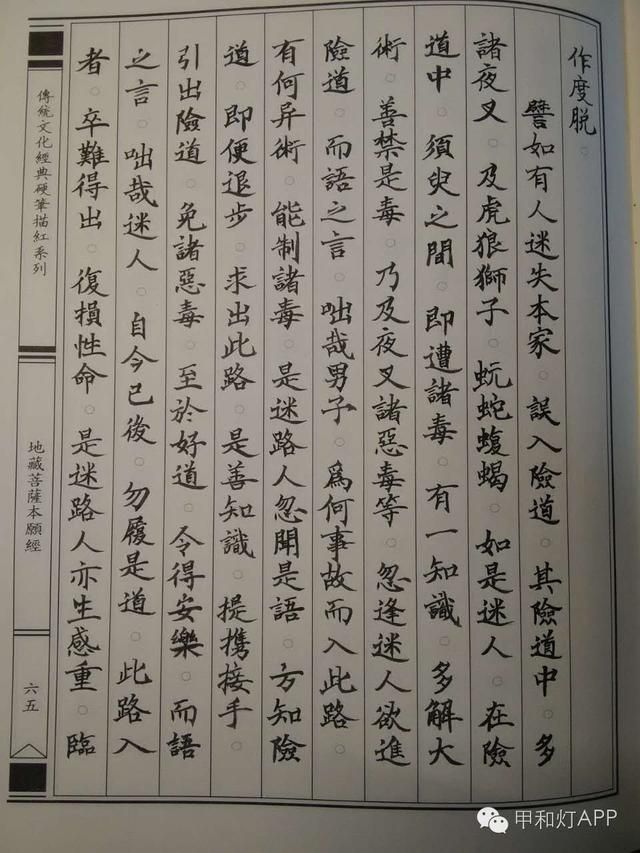 作度脱。
譬如有人迷失本家。誤入險道。其險道中。多
諸夜叉。及虎狼獅子。蚖蛇蝮蝎。如是迷人。在險
道中。須臾之間。即遭諸毒。有一知識。多解大
術。善禁是毒。乃及夜叉諸惡毒等。忽逢迷人欲進
險道。而語之言。咄哉男子。爲何事故而入此路。
有何异術。能制諸毒。是迷路人忽聞是語。方知險
道。即便退步。求出此路。是善知識。提携接手。
引出險道。免諸惡毒。至於好道。令得安樂。而語
之言。咄哉迷人。自今已後。勿履是道。此路入
者。卒難得出。復損性命。是迷路人亦生感重。臨
傳統文化經典硬筆描紅系列
地藏菩薩本願經
六五
甲和灯APP